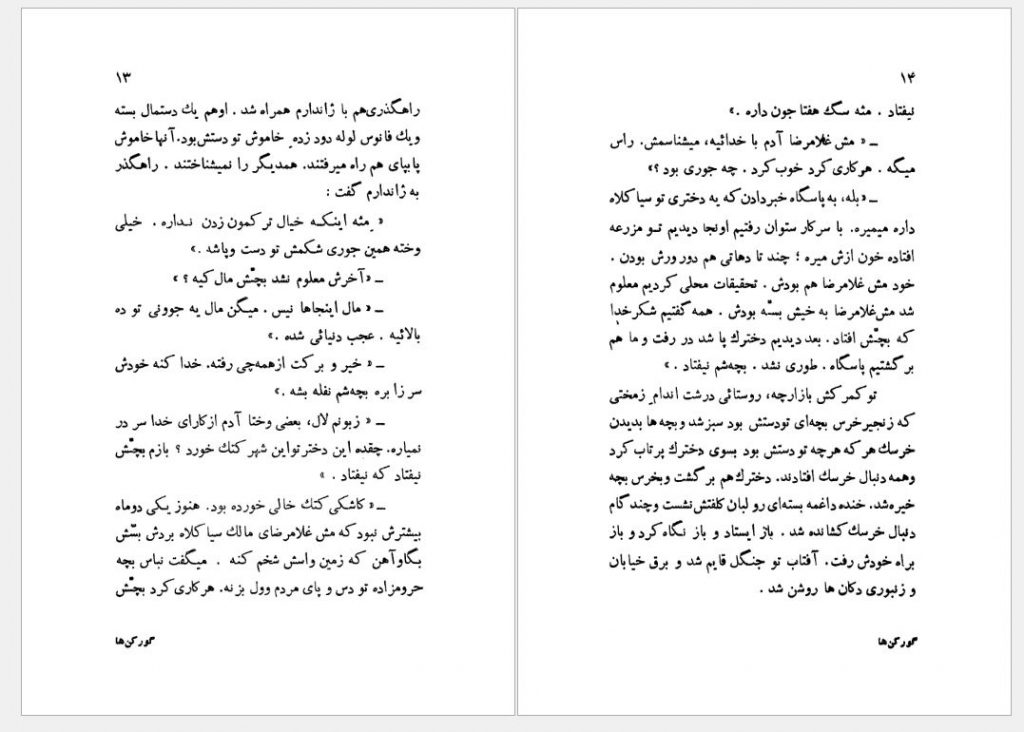 ۱۳
راهگذری‌هم با ژاندارم همراه شد . اوهم یك دستمال بسته
ویك فانوس لوله دود زدهِ خاموش تو دستش‌بود. آنها خاموش
پابپای هم راه میرفتند. همدیگر را نمیشناختند . راهگذر
به ژاندارم گفت :
« مِثه اینکه خیال ترکمون زدن نداره . خیلی
وخته همین جوری شکمش تو دست وپاشه .»
ــ « آخرش معلوم نشد بچّش مال کیه ؟ »
ــ « مال اینجاها نیس . میگن مال یه جوونی تو ده
بالائیه . عجب دنیائی شده .»
ــ « خیر و برکت ازهمه‌چی رفته. خدا کنه خودش
سر زا بره بچه‌شم نفله بشه .»
ــ « زبونم لال، بعضی وختا آدم ازکارای خدا سر در
نمیاره. چقده این دختر تواین شهر کتك خورد ؟ بازم بچّش
نیفتاد که نیفتاد . »
ــ « کاشکی کتك خالی خورده بود. هنوز یکی دوماه
بیشترش نبود که مش غلامرضای مالك سیا کلاه بردش بسّش
بگاوآهن که زمین واسش شخم کنه . میگفت نباس بچه
حرومزاده تو دس و پای مردم وول بزنه. هرکاری کرد بچّش
گورکن‌ها
۱۴
نیفتاد . مثه سگ هفتا جون داره .»
ــ « مش غلامرضا آدم با خدائیه، میشناسمش. راس
میگه . هرکاری کرد خوب کرد . چه جوری بود ؟»
ــ «بله، به پاسگاه خبردادن که یه دختری تو سیا کلاه
داره میمیره. با سرکار ستوان رفتیم اونجا دیدیم تـو مزرعه
افتاده خون ازش میره ؛ چند تا دهاتی هم دور ورش بودن .
خود مش غلامرضا هم بودش . تحقیقات محلی کردیم معلوم
شد مش‌غلامرضا به خیش بسّه بودش . همه گفتیم شکر خدا
که بچّش افتاد . بعد دیدیم دخترك پا شد در رفت و ما هم
برگشتیم پاسگاه . طوری نشد . بچه‌شم نیفتاد . »
تو کمرکش بازارچه، روستائی درشت اندامِ زمختی
که زنجیر خرس بچه‌ای تودستش بود سبز شد و بچه‌ها بدیدن
خرسك هر که هرچه تو دستش بود بسوی دخترك پرتاب کرد
وهمه دنبال خرسك افتادند. دخترك هم برگشت وبخرس بچه
خیره‌شد. خنده داغمه بسته‌ای رو لبان کلفتش نشست وچند گام
دنبال خرسك کشانده شد . باز ایستاد و باز نگاه کرد و باز
براه خودش رفت. آفتاب تو جنگل قایم شد و برق خیابان
و زنبوری دکان ها روشن شد .
گورکن‌ها